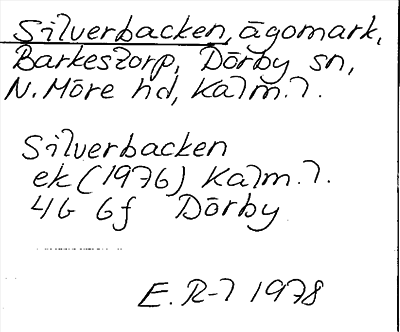 Silverbacken, ägomark,
Barkestorp, Dörby sn,
N. Möre hd, Kalm. l.
Silverbacken
ek (1976) Kalm. l.
4G 6f Dörby
E. R-l 1978